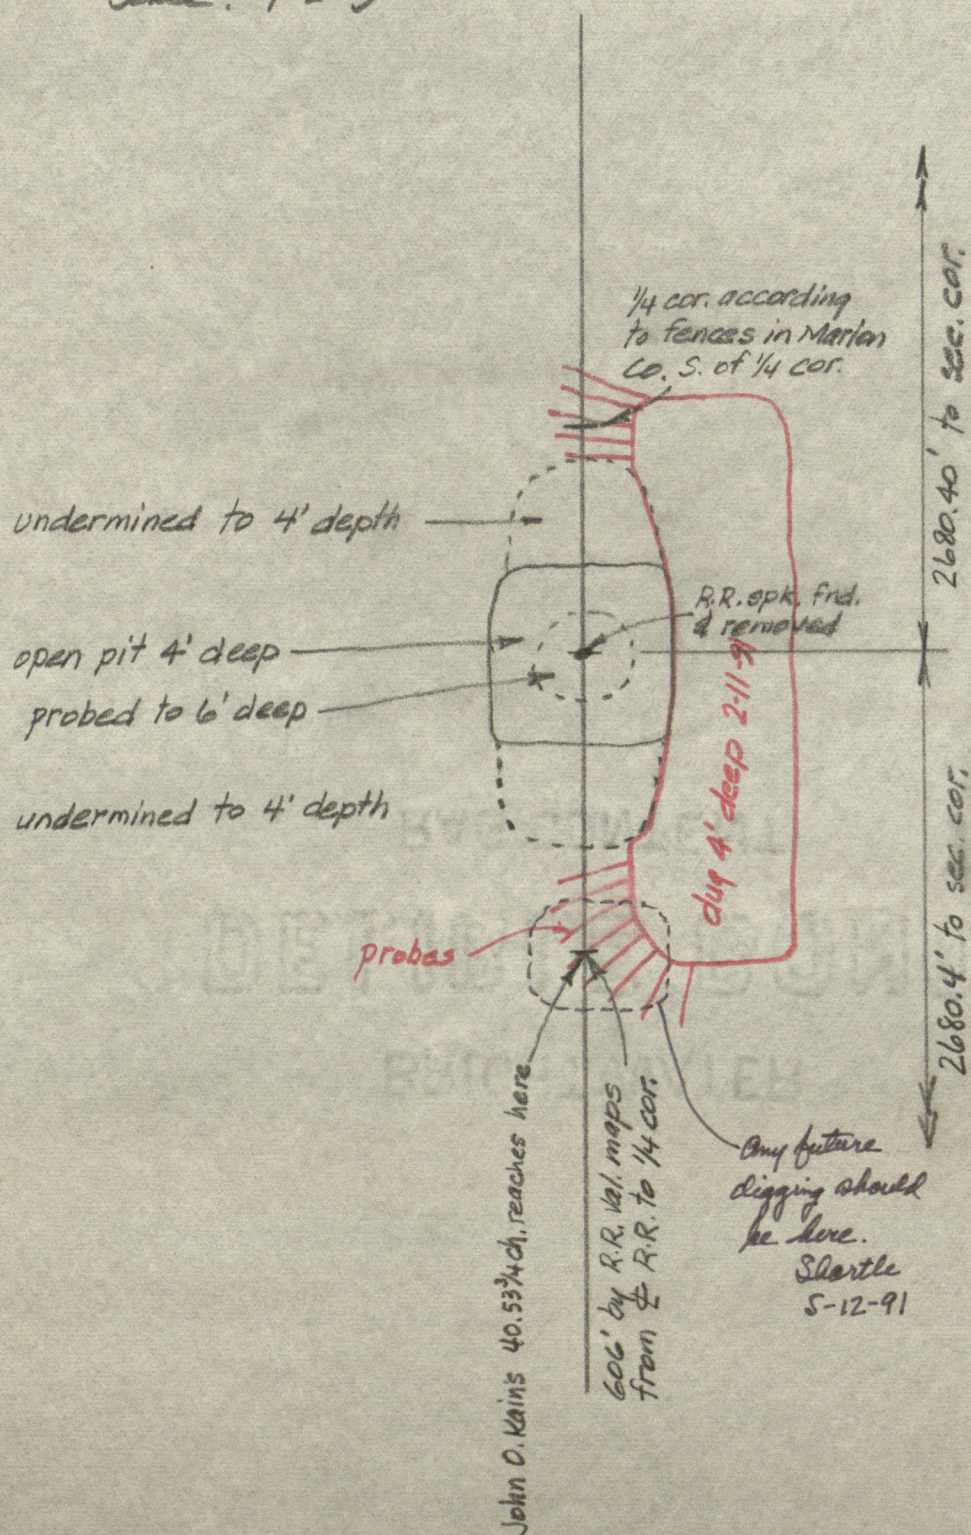 1/4 cor. according
to fences in Marion
Co. S. of 1/4 cor.
2680.40' to sec. cor.
undermined to 4' depth
R.R. spk. fnd.
& removed
open pit 4' deep
probed to 6' deep
dug 4' deep 2-11-91
undermined to 4' depth
2680.4' to sec. cor.
probes
John O. Kain's 40.53 3/4 ch. reaches here
606' by R.R. Val. maps
from ℄ R.R. to 1/4 cor.
Any future
digging should
be here.
Shortle
5-12-91